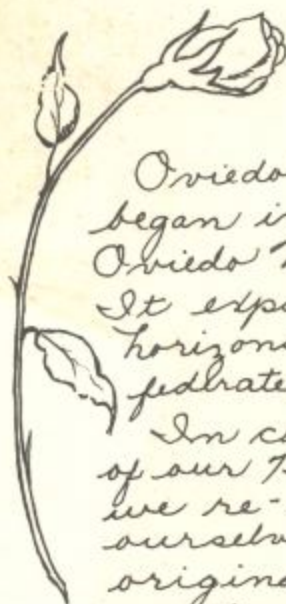 Oviedo
began i
Oviedo
It expa
horizon
federate
In co
of our
we re-
ourselv
origina